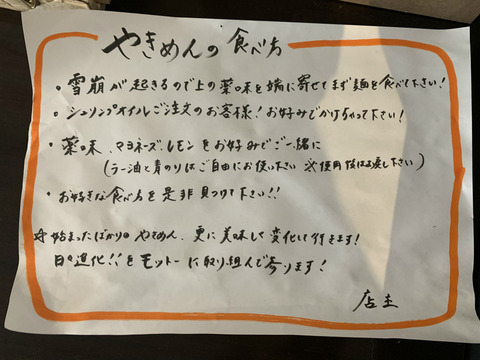 やきめんの食べ方
・雪崩が起きるので上の薬味を端に寄せてまず麺を食べて下さい!
・シュリンプオイルご注文のお客様!お好みでかけちゃって下さい!
・薬味、マヨネーズ、レモンをお好みでご一緒に
(ラー油と青のりはご自由にお使い下さい ※使用後はお戻し下さい)
・お好きな食べ方を是非見つけて下さい!!
☆始まったばかりのやきめん、更に美味しく変化して行きます!
日々進化!!をモットーに取り組んで参ります!
店主